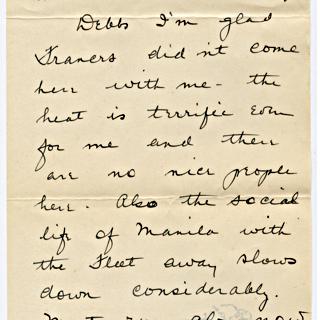 Debbs I'm glad
Frances did n't come
here with me - the
heat is terrific Even
for me and there
are no nice people
here. Also the social
life of Manila with
the Fleet away slows
down considerably.